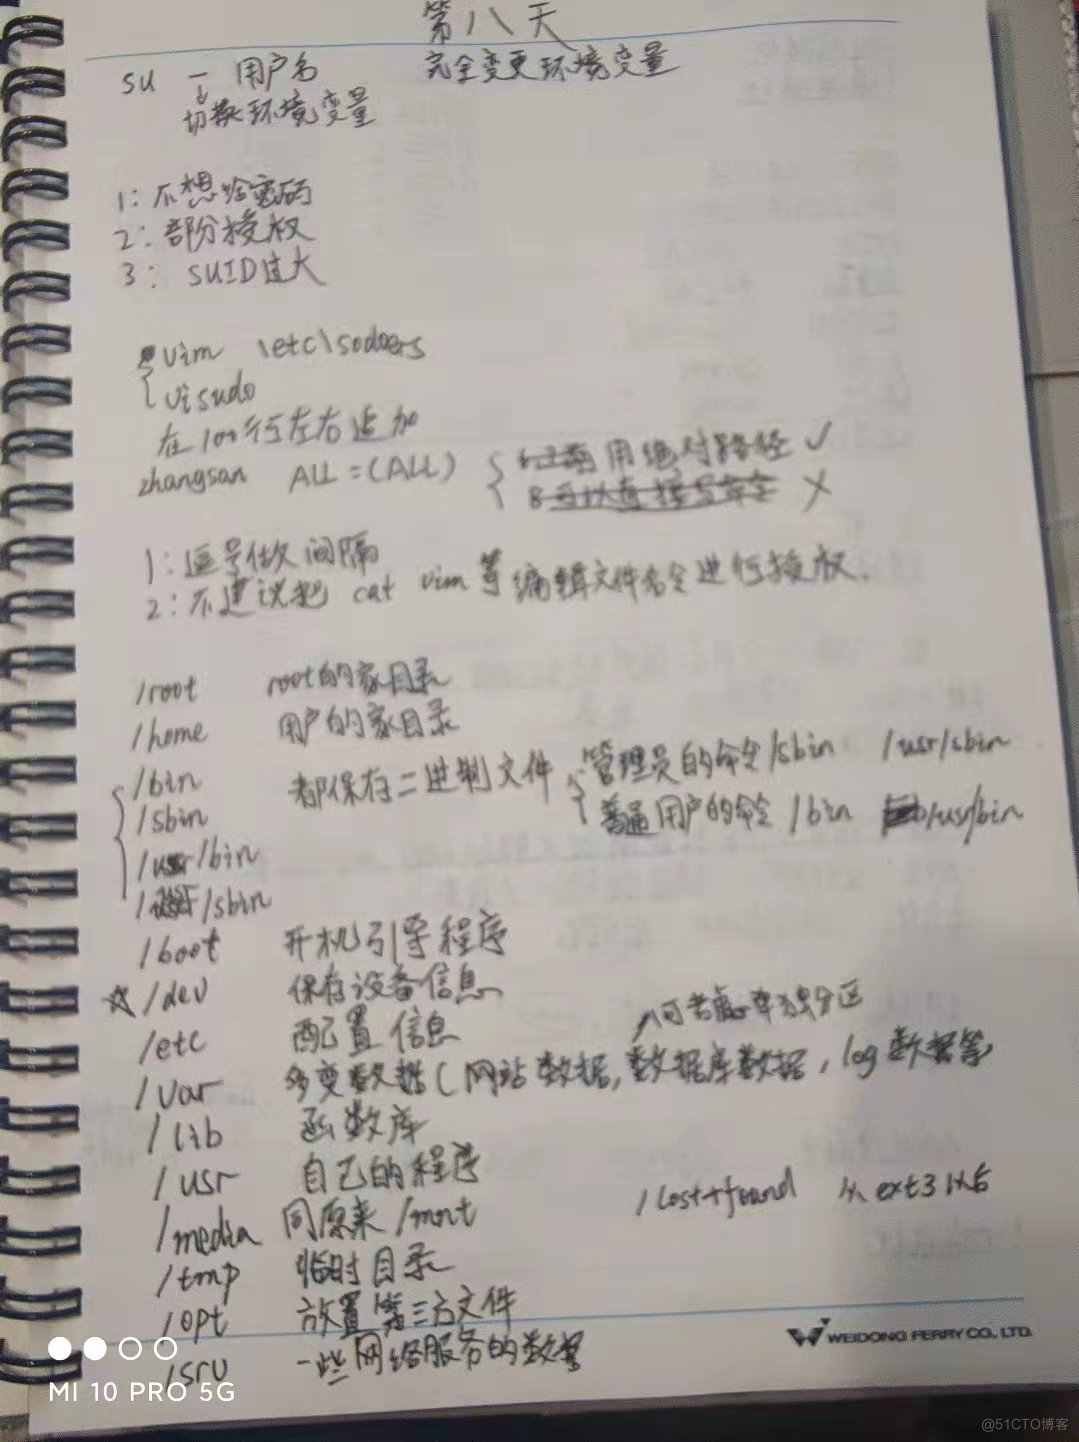 第八天
su - 用户名 完全变更环境变量
切换环境变量
1: 不想给密码
2: 部份授权
3: SUID过大
vim \etc\sodoers
visudo
在100行左右追加
zhangsan ALL=(ALL) 用绝对路径 ✓
可以直接写命令 ╳
1: 逗号做间隔
2: 不建议把 cat vim 等编辑文件命令进行授权.
/root root的家目录
/home 用户的家目录
/bin 都保存二进制文件 管理员的命令/sbin /usr/sbin
/sbin 普通用户的命令 /bin /usr/bin
/usr/bin
/sbin
/boot 开机引导程序
☆ /dev 保存设备信息
/etc 配置信息 可考虑单独分区
/var 多变数据(网站数据,数据库数据,log数据等
/lib 函数库
/usr 自己的程序
/media 同原来/mnt /lost+found 从ext3以后
/tmp 临时目录
/opt 放置第三方文件
/srv 一些网络服务的数据
WEIDONG FERRY CO., LTD.
MI 10 PRO 5G
@51CTO博客